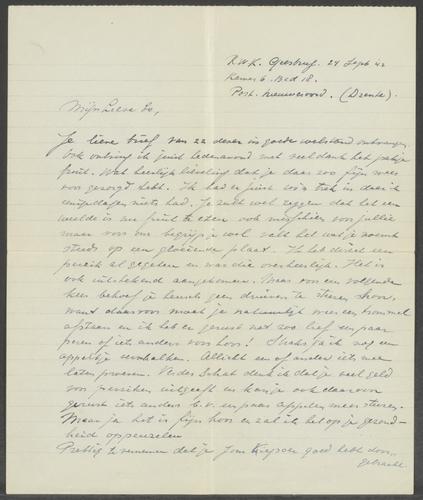 R.W.K. Geesbrug, 24 Sept 42
Kamer 6. Bed 18.
Post. Nieuweroord. (Drente).
Mijn Lieve
Je lieve brief van 22 dezer in goede welstand ontvangen.
Ook ontving ik juist met veel dank het pakje
fruit. Wat heerlijk lieveling dat je daar zoo fijn weer
voor gezorgd hebt. Ik had er juist zoo'n trek in daar ik
niets had. Je zult wel zeggen dat het een
weelde is nu fruit te eten ook misschien voor jullie
maar voor ons begrijp je wel valt het wat je noemt
steeds op een gloeiende plaat. Ik heb direct een
perzik al gegeten en was die overheerlijk. Het is
ook uitstekend aangekomen. Maar voor een volgende
keer behoef je heusch geen druiven te sturen hoor,
want daarvoor moet je natuurlijk weer een
afstaan en ik heb er gerust net zoo lief een paar
peren of iets anders voor hoor! Straks ga ik nog een
appeltje. Allicht een of ander iets mee
laten proeven. Verder Schat denk ik dat je veel geld
voor perziken uitgeeft en kan je ook daarvoor
gerust iets anders b.v. een paar appelen meer sturen.
Maar ja het is fijn hoor en zal ik het op je gezond-
heid oppeuzelen
Prettig te vernemen dat je Jom goed hebt door-
gebracht